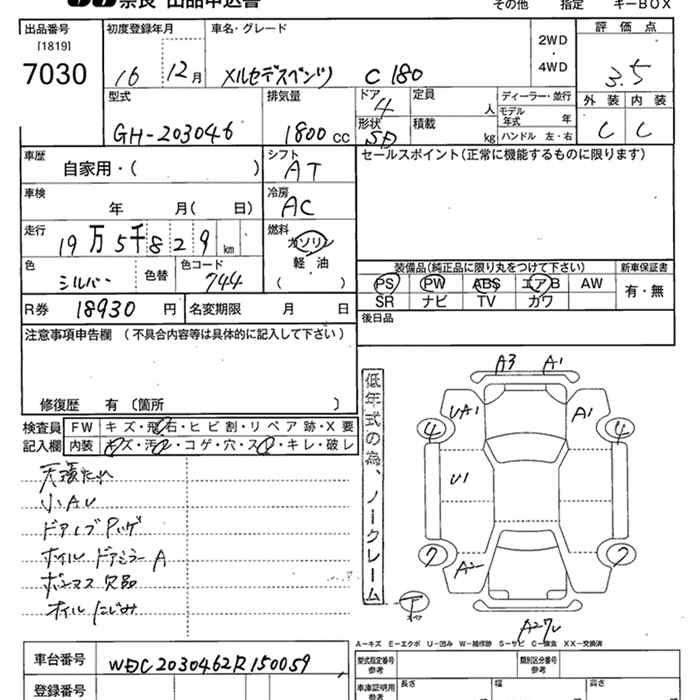 奈良 出品申込書
その他 指定 キーBOX
出品番号 初度登録年月 車名・グレード 評価点
[1819]
7030 16 12月 メルセデスベンツ C 180 2WD・4WD 3.5
型式 排気量 ドア 4 定員 人 ディーラー・並行 外装 内装
モデル年式 年
GH-203046 1800cc 形状 SD 積載 kg ハンドル 左・右 C C
車歴 自家用・( ) シフト AT セールスポイント(正常に機能するものに限ります)
車検 年 月( 日) 冷房 AC
走行 19万5千829km 燃料 ガソリン
軽・油
( )
色 シルバー 色替 色コード 744
装備品(純正品に限り丸をつけて下さい) 新車保証書
PS PW ABS エアB AW 有・無
SR ナビ TV カワ
R券 18930円 名変期限 月 日
後日品
注意事項申告欄(不具合内容等は具体的に記入して下さい)
修復歴 有〔箇所 〕
検査員記入欄 FW キズ・飛石・ヒビ割・リペア跡・X要
内装 キズ・汚れ・コゲ・穴・スレ・キレ・破レ
天張たれ
小AU
ドアミラーA
欠品
オイルにじみ
低年式の為、ノークレーム
A3 A1
UA1 A1
4 4
U1
7 7
A2
下
A-キズ E-エクボ U-凹み W-補修跡 S-サビ C-腐食 XX-交換済
車台番号 WDC2030462R150059
型式指定番号 参考 類別区分番号 参考
登録番号 車庫証明用 参考 長さ 幅 高さ